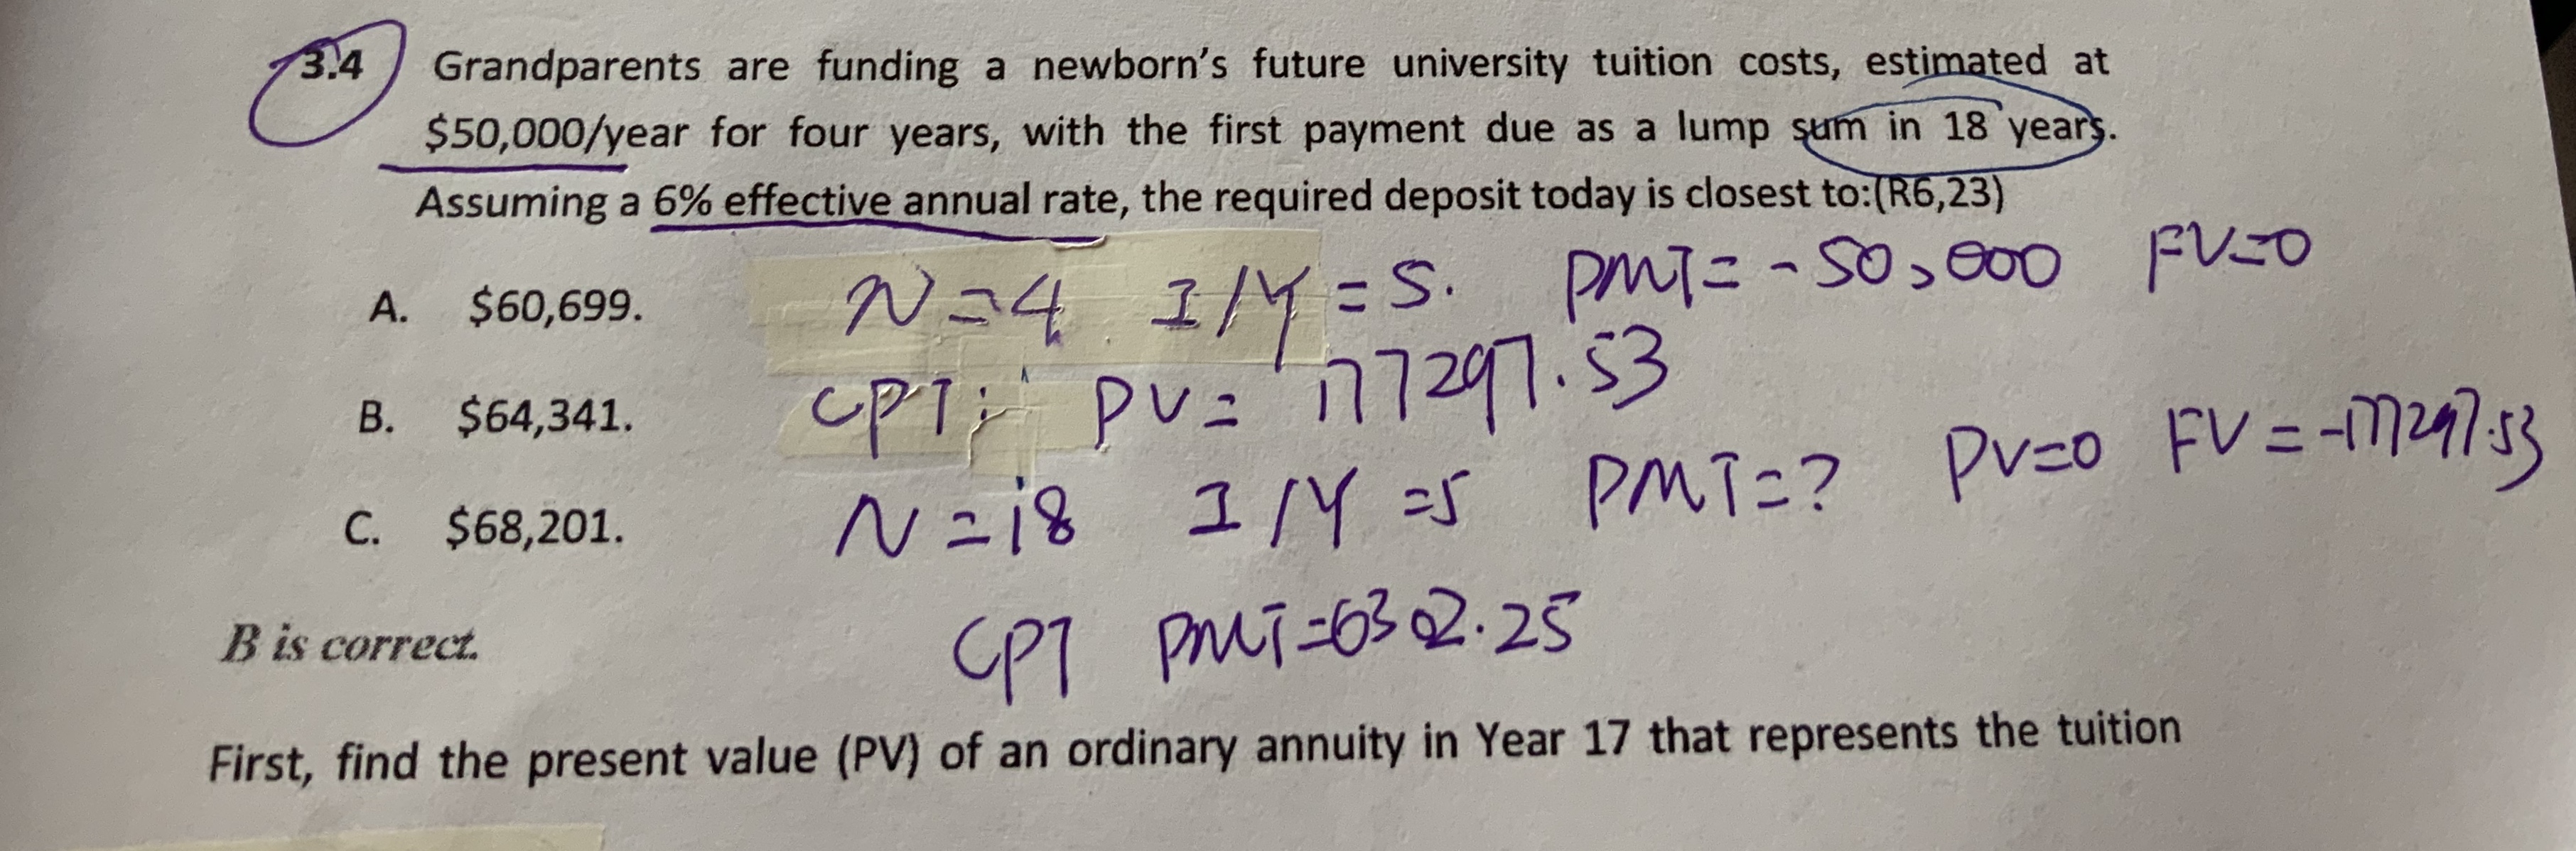 3.4 Grandparents are funding a newborn's future university tuition costs, estimated at
$50,000/year for four years, with the first payment due as a lump sum in 18 years.
Assuming a 6% effective annual rate, the required deposit today is closest to:(R6,23)
N=4 I/Y=5. PMT=-50,000 FV=0
A. $60,699.
CPT: PV= 177297.53
B. $64,341.
N=18 I/Y=5 PMT=? PV=0 FV=-177297.53
C. $68,201.
CPT PMT=6302.25
B is correct.
First, find the present value (PV) of an ordinary annuity in Year 17 that represents the tuition